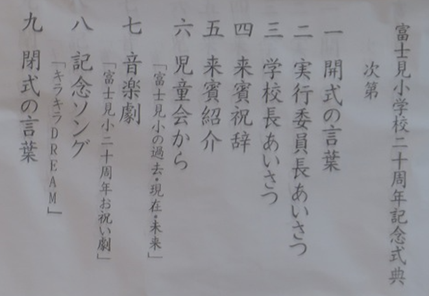 富士見小学校二十周年記念式典
次第
一 開式の言葉
二 実行委員長あいさつ
三 学校長あいさつ
四 来賓祝辞
五 来賓紹介
六 児童会から
「富士見小の過去・現在・未来」
七 音楽劇
「富士見小二十周年お祝い劇」
八 記念ソング
「キラキラDREAM」
九 閉式の言葉